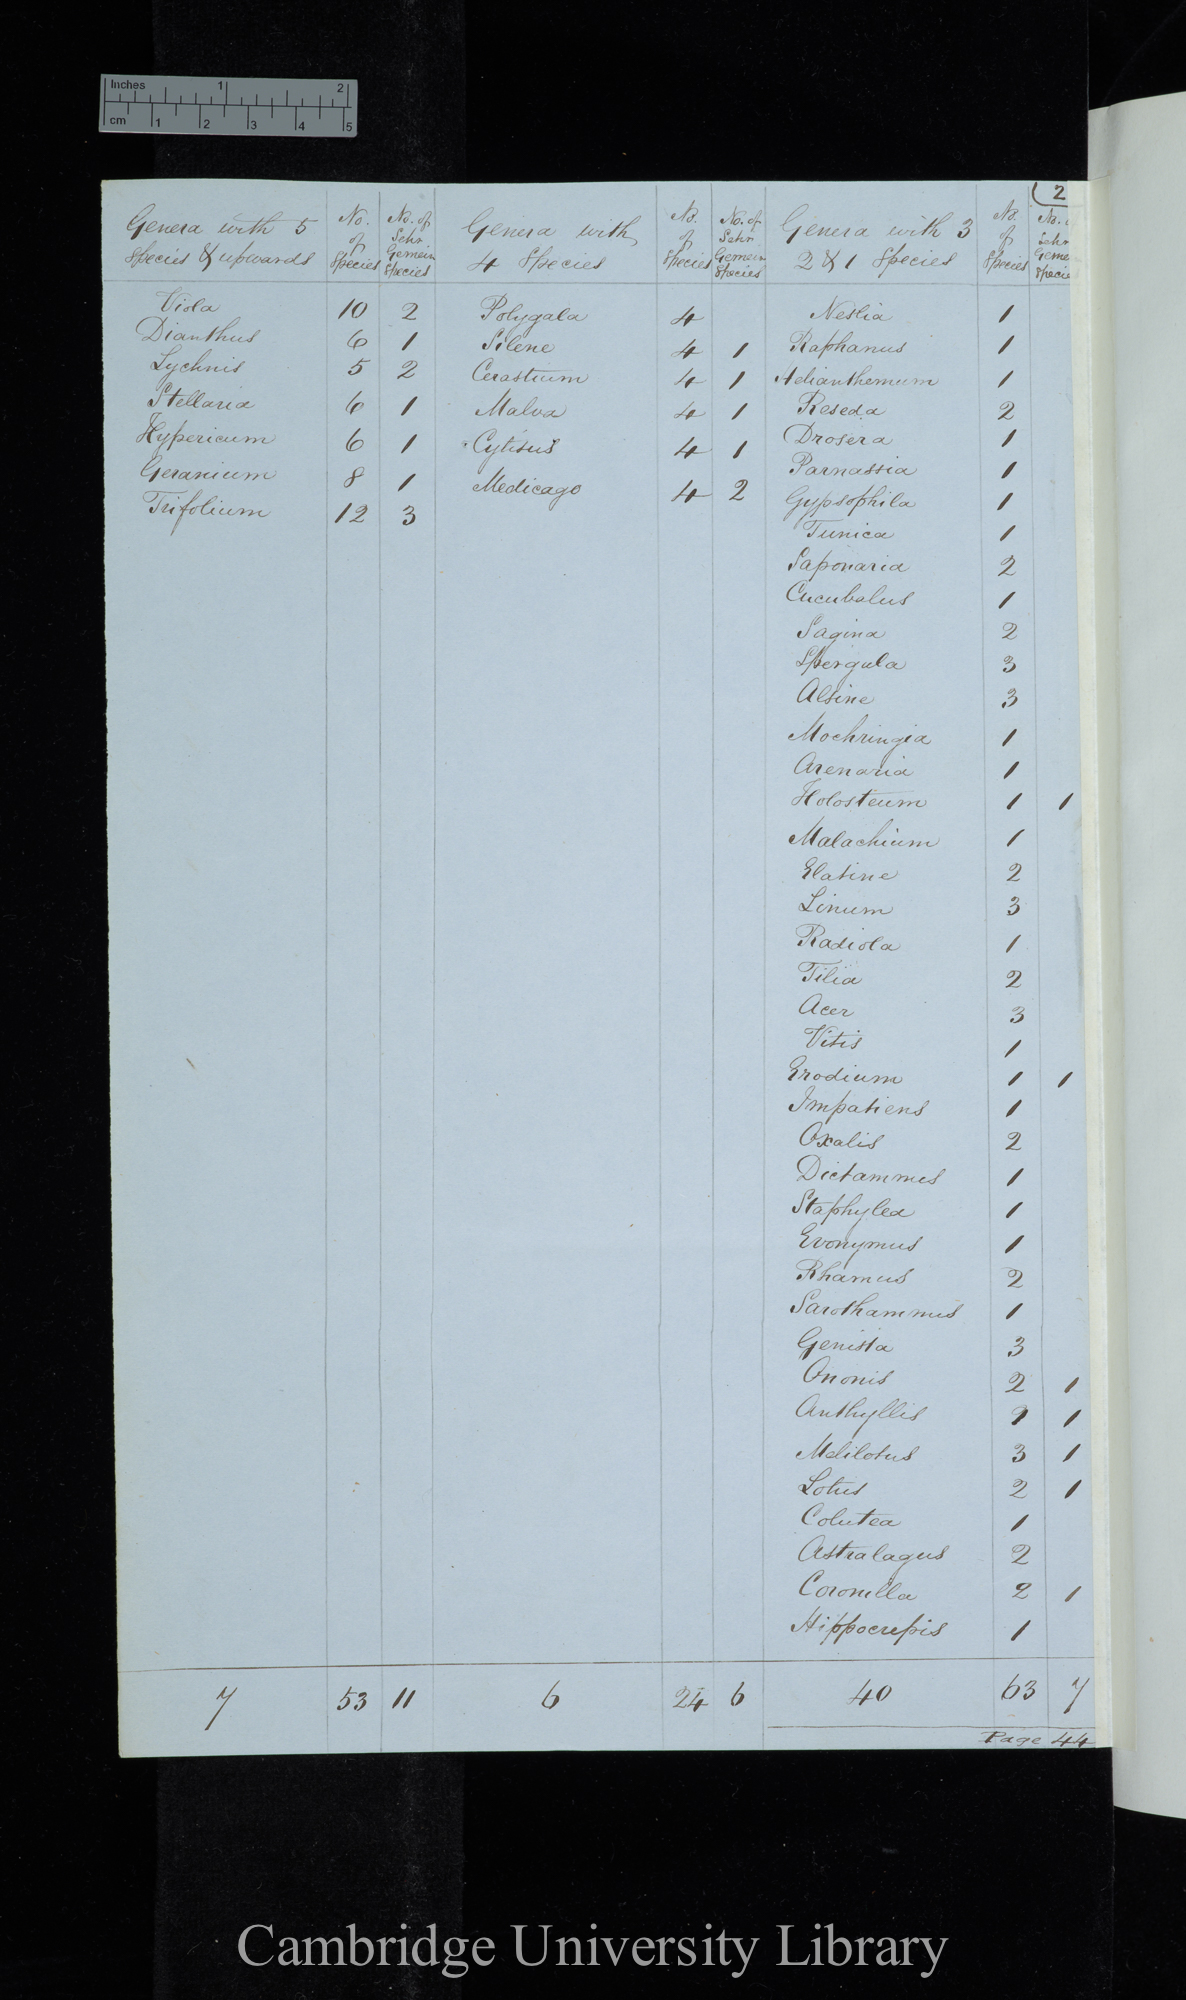 Inches 1 2
cm 1 2 3 4 5
2
Genera with 5 Species & upwards | No. of Species | No. of Sehr Gemein Species | Genera with 4 Species | No. of Species | No. of Sehr Gemein Species | Genera with 3 2 & 1 Species | No. of Species | No. Sehr Species
Viola 10 2 Polygala 4 Neslia 1
Dianthus 6 1 Silene 4 1 Raphanus 1
Lychnis 5 2 Cerastium 4 1 Helianthemum 1
Stellaria 6 1 Malva 4 1 Reseda 2
Hypericum 6 1 Cytisus 4 1 Drosera 1
Geranium 8 1 Medicago 4 2 Parnassia 1
Trifolium 12 3 Gypsophila 1
Tunica 1
Saponaria 2
Cucubalus 1
Sagina 2
Spergula 3
Alsine 3
Moehringia 1
Arenaria 1
Holosteum 1 1
Malachium 1
Elatine 2
Linum 3
Radiola 1
Tilia 2
Acer 3
Vitis 1
Erodium 1 1
Impatiens 1
Oxalis 2
Dictammus 1
Staphylea 1
Evonymus 1
Rhamus 2
Sarothammus 1
Genista 3
Ononis 2 1
Anthyllis 1 1
Melilotus 3 1
Lotus 2 1
Colutea 1
Astralagus 2
Coronilla 2 1
Hippocrepis 1
7 53 11 6 24 6 40 63 7
Page 44
Cambridge University Library